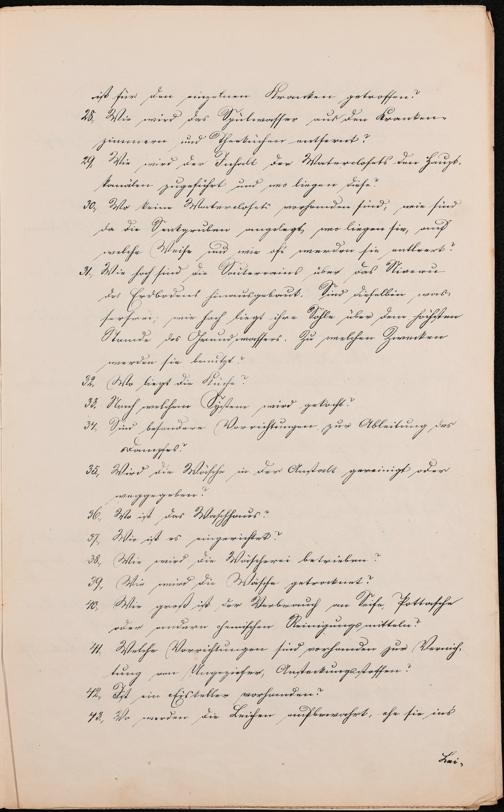 ist für den einzelnen Kranken getroffen?
28. Wie wird das Spülwasser aus den Kranken-
zimmern und Theeküchen entfernt?
29. Wie wird der Inhalt der Waterclosets den Haupt-
kanälen zugeführt und wo liegen diese?
30. Wo keine Waterclosets vorhanden sind, wie sind
da die Senkgruben angelegt, wo liegen sie, auf
welche Weise und wie oft werden sie entleert?
31. Wie hoch sind die Souterrains über das Niveau
des Erdbodens hinausgebaut. Sind dieselben was-
serfrei; wie hoch liegt ihre Sohle über dem höchsten
Stande des Grundwassers. Zu welchen Zwecken
werden sie benutzt?
32. Wo liegt die Küche?
33. Nach welchem System wird gekocht?
34. Sind besondere Vorrichtungen zur Ableitung des
Dampfes?
35. Wird die Wäsche in der Anstalt gereinigt oder
weggegeben?
36. Wo ist das Waschhaus?
37. Wie ist es eingerichtet?
38. Wie wird die Wäscherei betrieben?
39. Wie wird die Wäsche getrocknet?
40. Wie groß ist der Verbrauch an Seife, Pottasche
oder andern chemischen Reinigungsmitteln?
41. Welche Vorrichtungen sind vorhanden zur Vernich-
tung von Ungeziefer, Ansteckungsstoffen?
42. Ist ein Eiskeller vorhanden?
43. Wo werden die Leichen aufbewahrt, ehe sie ins
Lei-